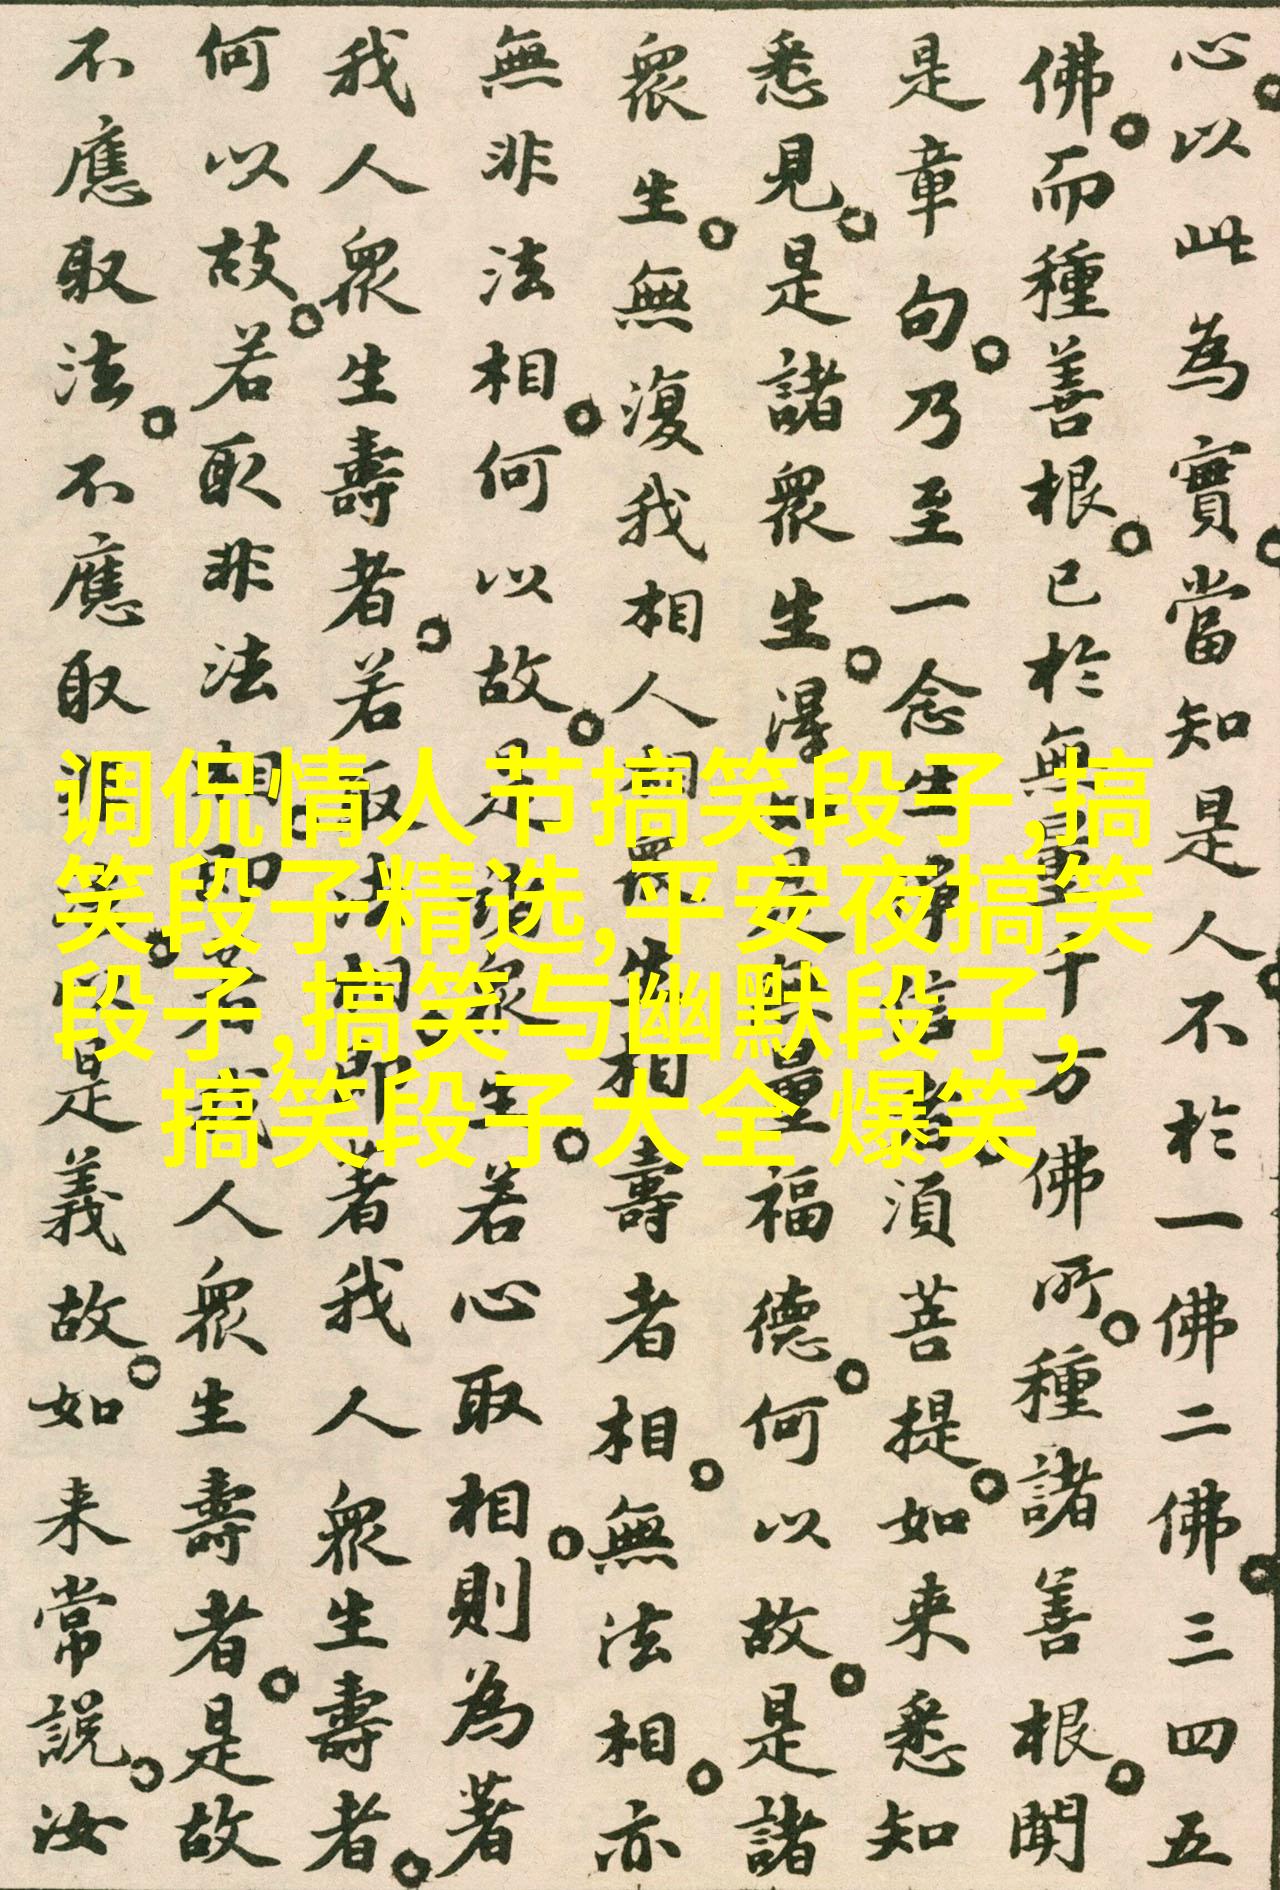 调侃情人节搞笑段子,搞
笑段子精选,平安夜搞笑
段子,搞笑与幽默段子,
搞笑段子大全 爆笑
心。以此為實。當知是人。不於一佛二佛。三四五
佛。而種善根。已於無量千万佛所。種諸善根。聞
是章句。乃至一念生淨信者。須菩提。如来悉知
悉見。是諸眾生。得如是無量福德。何以故。是諸
眾生。無復我相人相眾生相壽者相。無法相。亦
無非法相。何以故。是諸眾生。若心取相。則為著
我人眾生壽者。若取法相。即著我人眾生壽者。
何以故。若取非法相。即著我人眾生壽者。是故
不應取法。不應取非法。以是義故。如来常說。汝